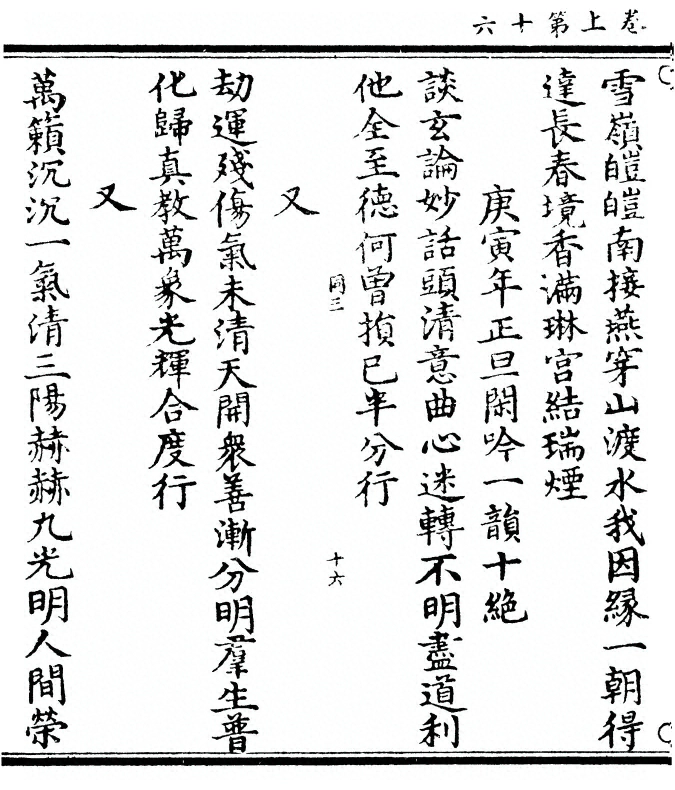 卷上第十六
雪嶺皚皚南接燕穿山渡水我因緣一朝得
達長春境香滿琳宮結瑞煙
庚寅年正旦閑吟一韻十絕
談玄論妙話頭清意曲心迷轉不明盡道利
他全至德何曾損已半分行
同三
十六
又
劫運殘傷氣未清天開衆善漸分明羣生普
化歸真教萬象光輝合度行
又
萬籟沉沉一氣清三陽赫赫九光明人間榮